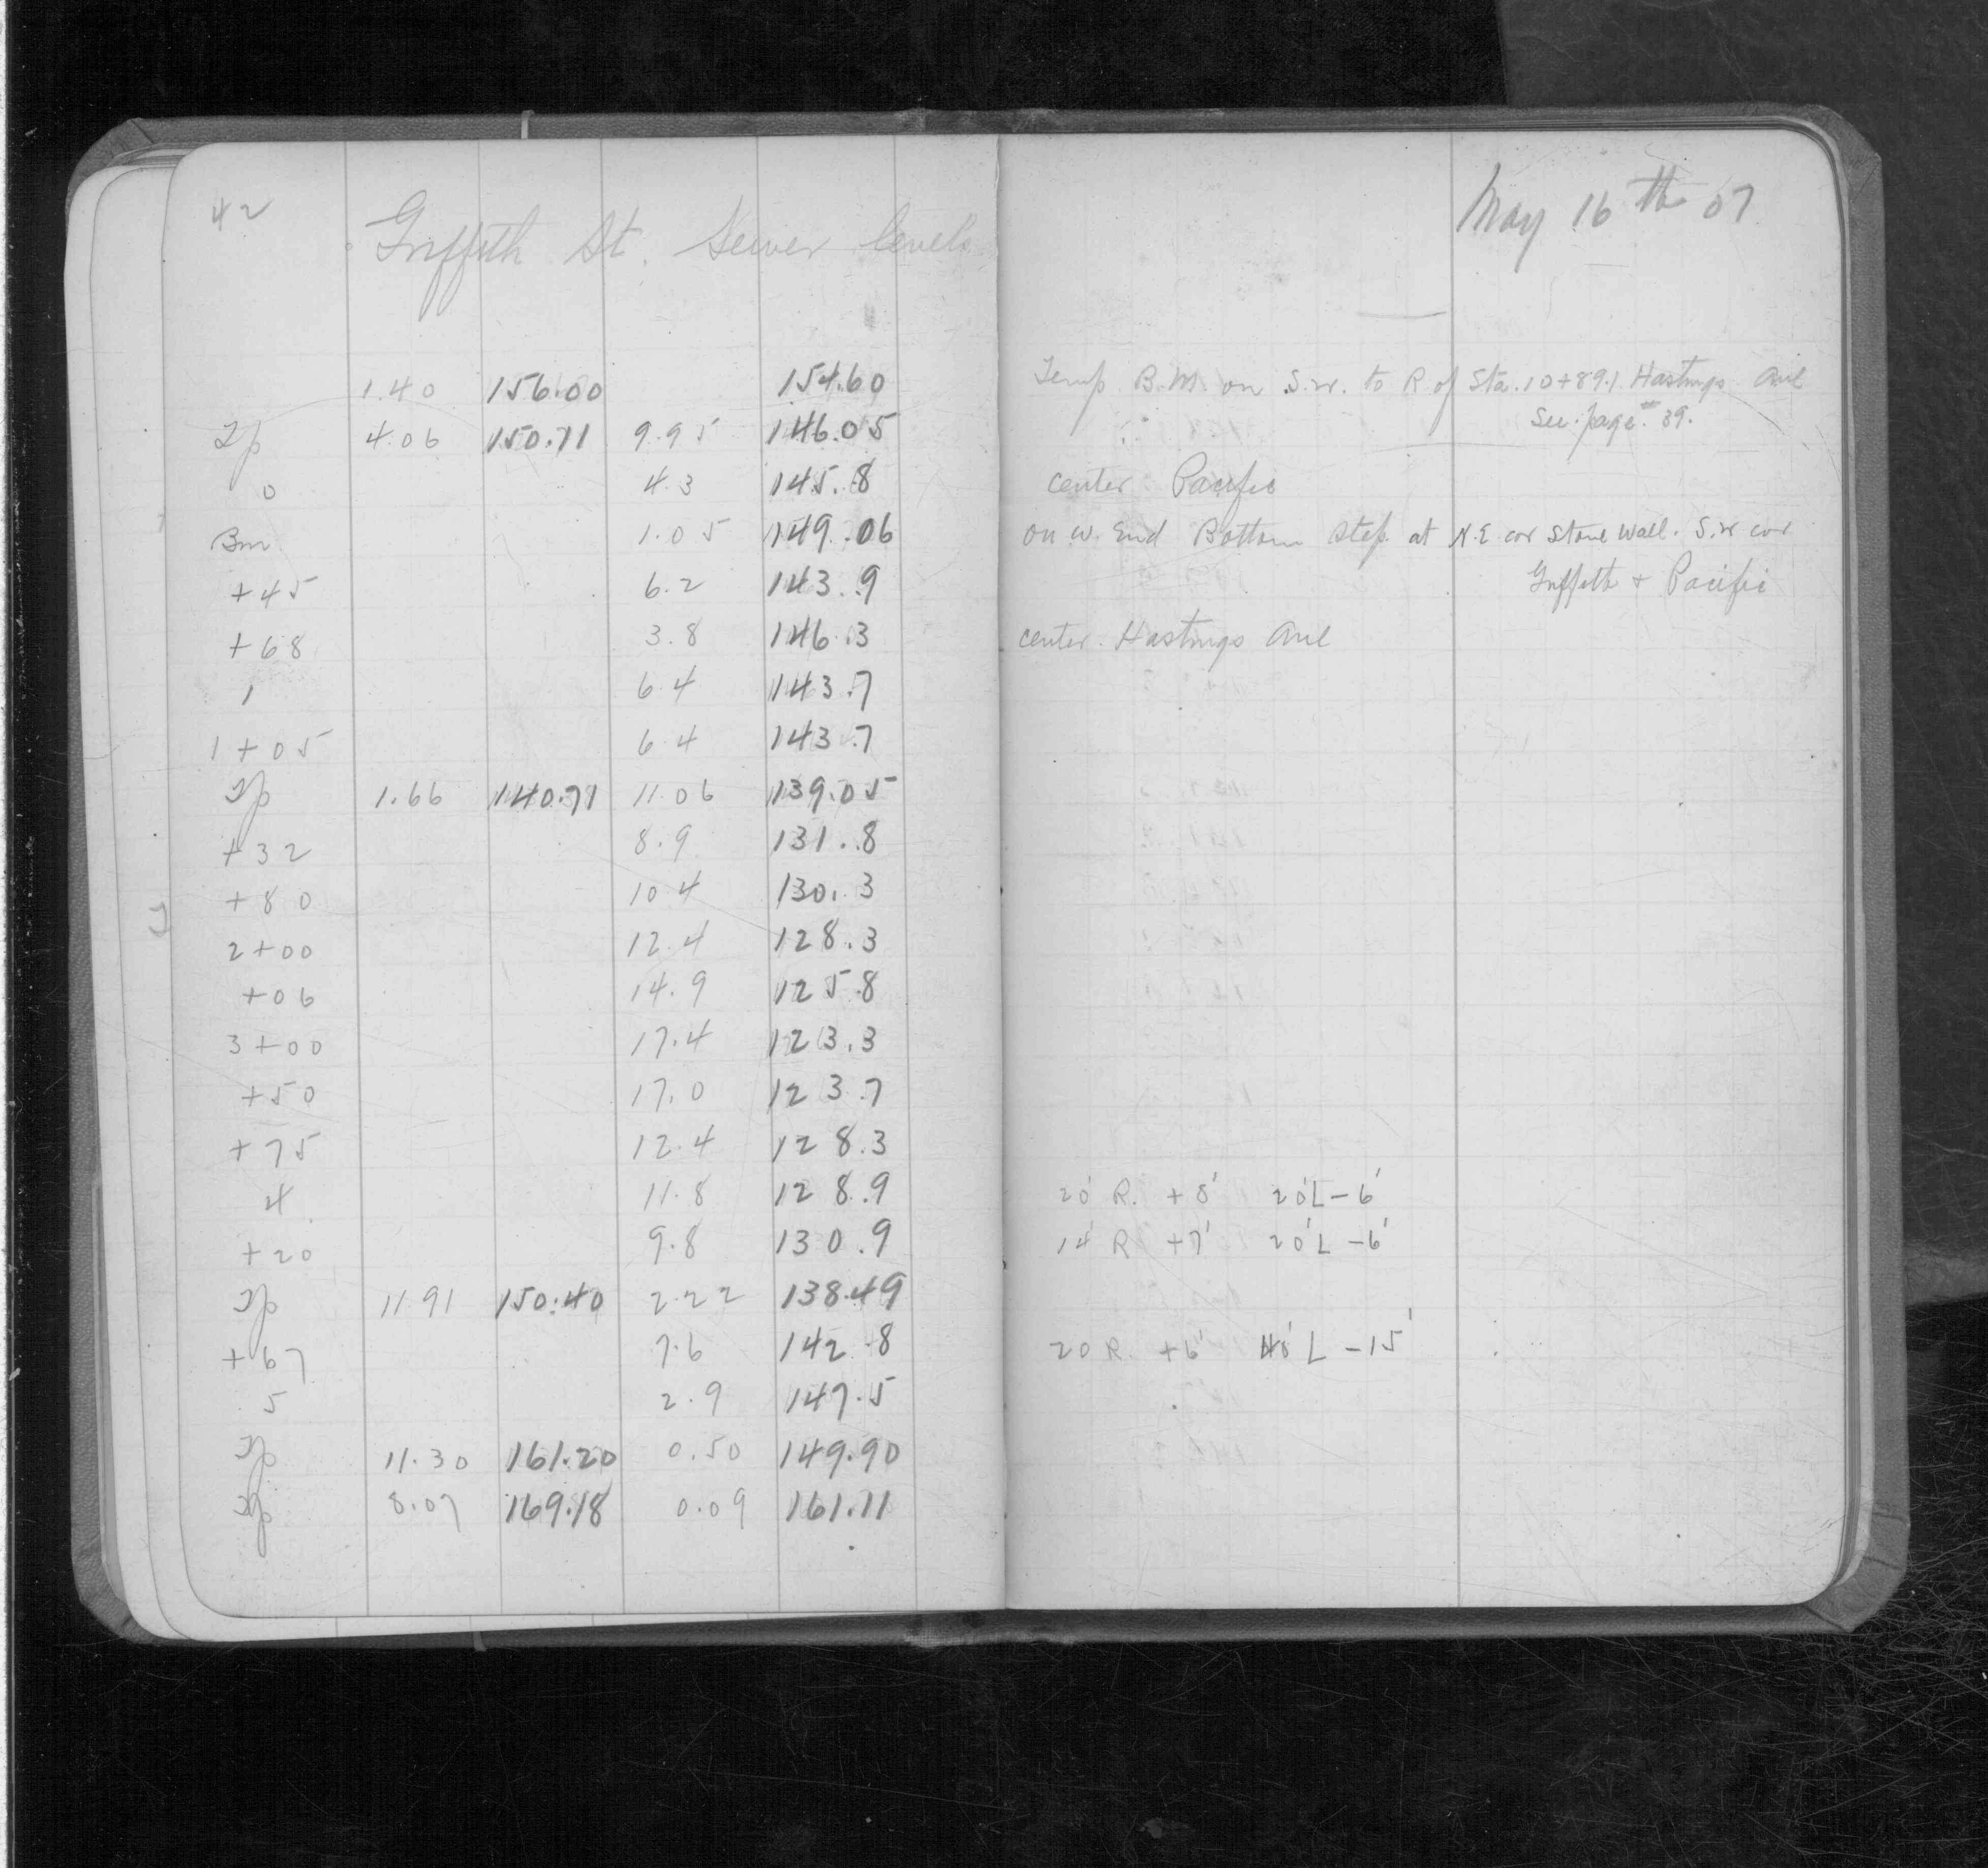 42
Griffeth St. Sewer levels
May 16th 07
1.40 156.00 154.60 Temp B.M. on S.W. to R of Sta. 10+89.1 Hastings Ave
See page 39.
Tp 4.06 150.11 9.95 146.05
0 4.3 145.8 center Pacific
Bm 1.05 149.06 on W. End Bottom Step at N.E. cor Stone Wall. S.W cor
Griffeth + Pacific
+45 6.2 143.9
+68 3.8 146.3 center Hastings Ave
1 6.4 143.7
1+05 6.4 143.7
Tp 1.66 140.71 11.06 139.05
+32 8.9 131.8
+80 10.4 130.3
2+00 12.4 128.3
+06 14.9 125.8
3+00 17.4 123.3
+50 17.0 123.7
+75 12.4 128.3
4 11.8 128.9 20' R. +8' 20'L -6'
+20 9.8 130.9 14' R +7' 20'L -6'
Tp 11.91 150.40 2.22 138.49
+67 7.6 142.8 20 R. +6' 40'L -15'
5 2.9 147.5
Tp 11.30 161.20 0.50 149.90
Tp 8.07 169.18 0.09 161.11